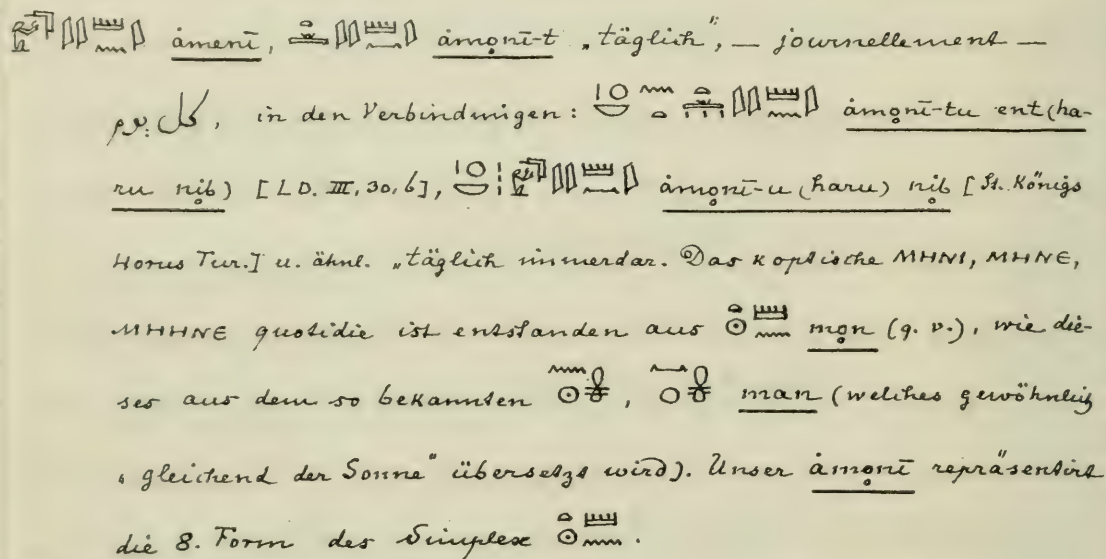 ȧmenī, ȧmo̤nī-t „täglich", — journellement —
كل يوم, in den Verbindungen: ȧmo̤nī-tu ent (ha-
ru nib) [LD. III, 30, b], ȧmo̤nī-u (haru) nib [St. Königs
Horus Tur.] u. ähnl. „täglich immerdar. Das koptische ⲙⲏⲛⲓ, ⲙⲏⲛⲉ,
ⲙⲏⲏⲛⲉ quotidie ist entstanden aus mo̤n (q. v.), wie die-
ses aus dem so bekannten man (welches gewöhnlich
„gleichend der Sonne" übersetzt wird). Unser ȧmo̤nī repräsentirt
die 8. Form des Simplex